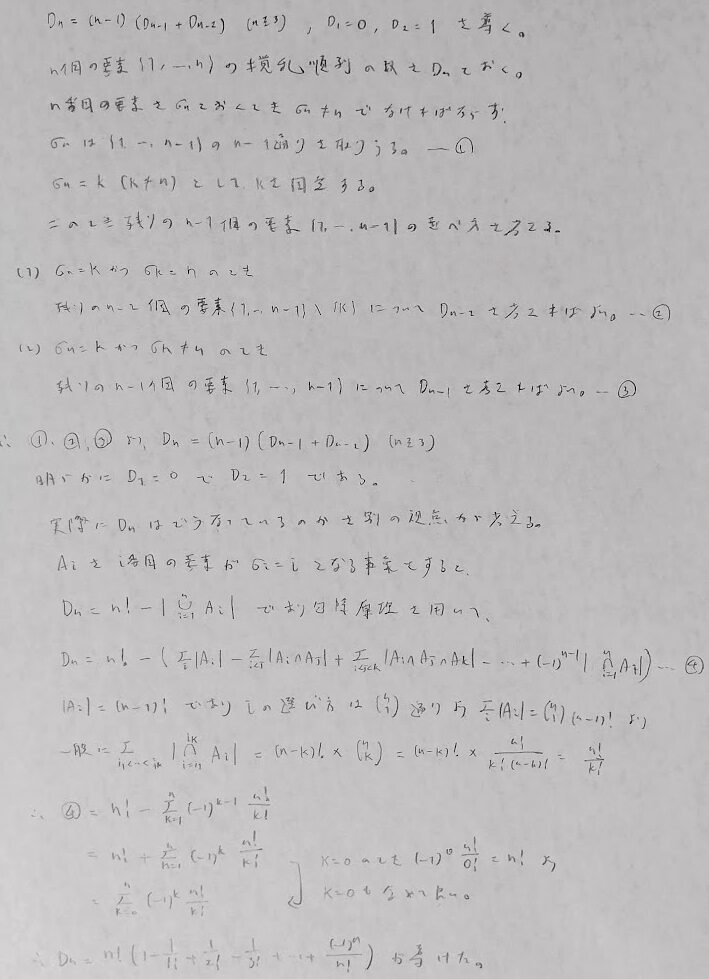 Dn = (n-1) (Dn-1 + Dn-2) (n≧3) , D1=0, D2=1 を導く。
n個の要素{1, …, n}の撹乱順列の数をDnとおく。
n番目の要素をσnとおくときσn≠nでなければならず、
σnは{1, …, n-1}のn-1通りを取りうる。 ―①
σn=k (k≠n) としてkを固定する。
このとき残りのn-1個の要素{1, …, n-1}の並べ方を考える。
(1) σn=kかつσk=nのとき
残りのn-2個の要素{1, …, n-1}\{k}についてDn-2を考えればよい。…②
(2) σn=kかつσk≠nのとき
残りのn-1個の要素{1, …, n-1}についてDn-1を考えればよい。…③
∴ ①,②,③より、Dn=(n-1)(Dn-1+Dn-2) (n≧3)
明らかにD1=0でD2=1である。
実際にDnはどうなっているのかを別の視点から考える。
Aiをi番目の要素がσi=iとなる事象とすると、
Dn = n! - |⋃_{i=1}^{n} Ai| であり包除原理を用いて、
Dn = n! - (Σ_i |Ai| - Σ_{i<j} |Ai∩Aj| + Σ_{i<j<k} |Ai∩Aj∩Ak| - … + (-1)^{n-1} |⋂_{i=1}^{n} Ai|) … ④
|Ai| = (n-1)! でありiの選び方は (n 1) 通りより Σ_i |Ai| = (n 1)(n-1)! より
一般に Σ_{i1<…<ik} |⋂_{i=i1}^{ik} Ai| = (n-k)! × (n k) = (n-k)! × n!/k!(n-k)! = n!/k!
∴ ④ = n! - Σ_{k=1}^{n} (-1)^{k-1} n!/k!
= n! + Σ_{k=1}^{n} (-1)^k n!/k!
k=0のとき (-1)^0 n!/0! = n! より
= Σ_{k=0}^{n} (-1)^k n!/k!
k=0も含めてよい。
∴ Dn = n! (1 - 1/1! + 1/2! - 1/3! + … + (-1)^n/n!) が導けた。